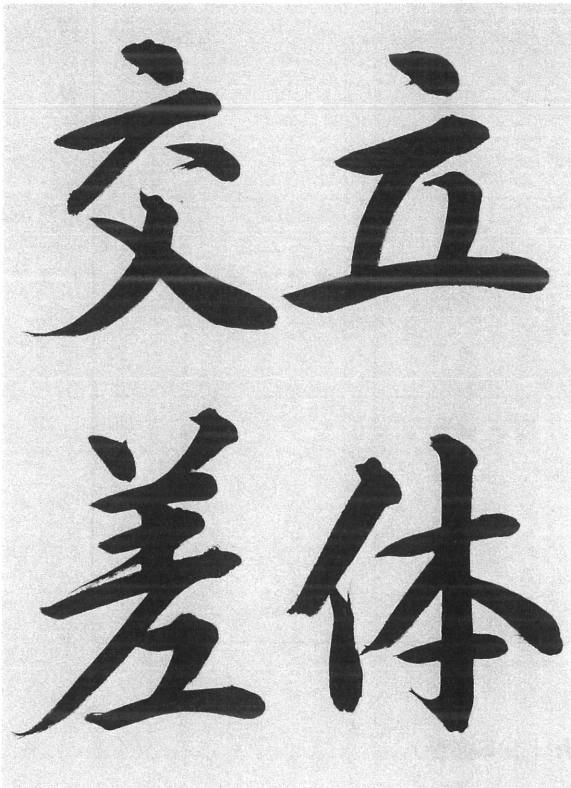 立体
交差